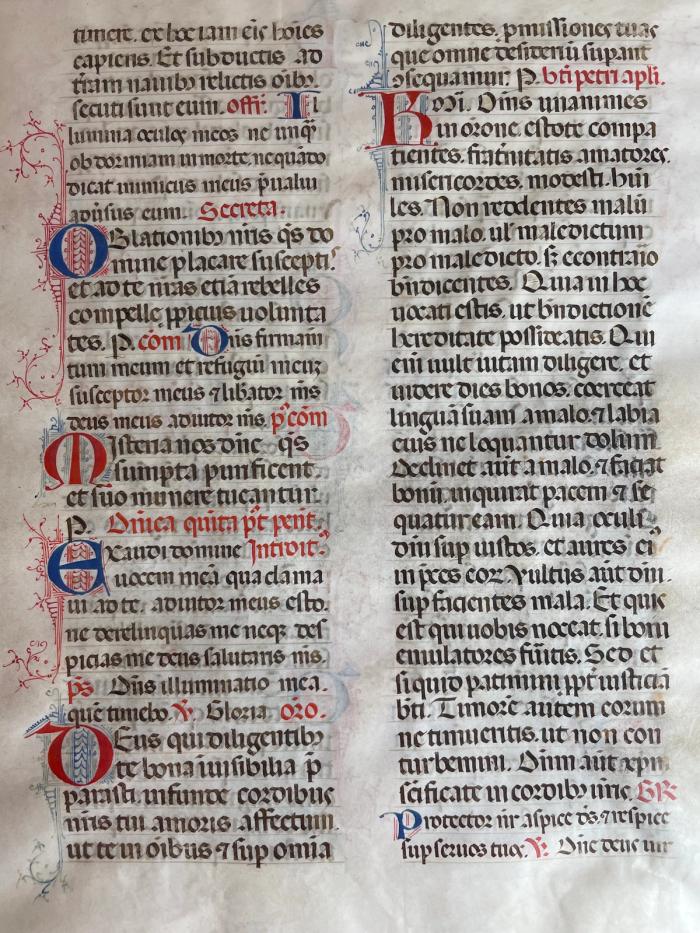 timere. ex hoc iam eīs hoīes
capiens. Et subductis ad
terram nauibꝰ relictis oībꝰ
secuti sunt eum. offī. Il
lumina oculos meos ne unq̄
obdormiam in morte. nequādo
dicat inimicus meus p̄ualui
aduersus eum. Secreta.
OBlationibꝰ nr̄is qs̄ do
mine placare suscepti.
et ad te nr̄as etiā rebelles
compelle ꝓpicius uolunta
tes. P. cōm Dn̄s firmam̄
tum meum et refugiū meuꝫ
susceptor meus ⁊ libator m̄s
deus meus adiutor m̄s. p̄ cōm
MIsteria nos dn̄e. qs̄
sumpta purificent.
et suo munere tueantur
P. Dn̄ica quīta p̄t pent.
EXaudi domine Introit.
uocem meā qua clama
ui ad te. adiutor meus esto.
ne derelinquas me neqꝫ des
picias me deus salutaris m̄s.
ps̄ Dn̄s illuminatio mea.
quē timebo. V. Gloria. oro.
DEus qui diligentibꝰ
te bona inuisibilia p̄
parasti. infunde cordibus
nr̄is tui amoris affectum.
ut te in oībus ⁊ sup omīa
diligentes. ꝓmissiones tuas
que omne desideriū supant
ꝯsequamur. P. bt̄i petri apl̄i.
KRm̄i. Om̄s unanimes
in orōne. estote compa
tientes. frat̄nitatis amatores.
misericordes. modesti. hūi
les. Non reddentes malū
pro malo. ul̄ maledictum
pro maledicto. sꝫ econtrario
bn̄dicentes. Quia in hoc
uocati estis. ut bn̄dictionē
hereditate possideatis. Qui
eīi uult uitam diligere. et
uidere dies bonos. coerceat
linguā suam a malo. ⁊ labia
eius ne loquantur dolum.
Declinet aūt a malo. ⁊ faciat
bonū. inquirat pacem ⁊ se
quatur eam. Quia oculi
dn̄i sup iustos. et aures eiꝰ
in p̄ces eoꝝ. Vultus aūt dn̄i.
sup facientes mala. Et quis
est qui uobis noceat. si boni
emulatores fūitis. Sed et
si quid patimini ꝓpt̄ iusticiā
bt̄i. Timorē autem eorum
ne timueritis. ut non con
turbemini. Dn̄m aūt xp̄m
sc̄ificate in cordibꝰ ur̄is. GR
Protector nr̄ aspice ds̄. ⁊ respice
sup seruos tuos. V. Dn̄e deus uir